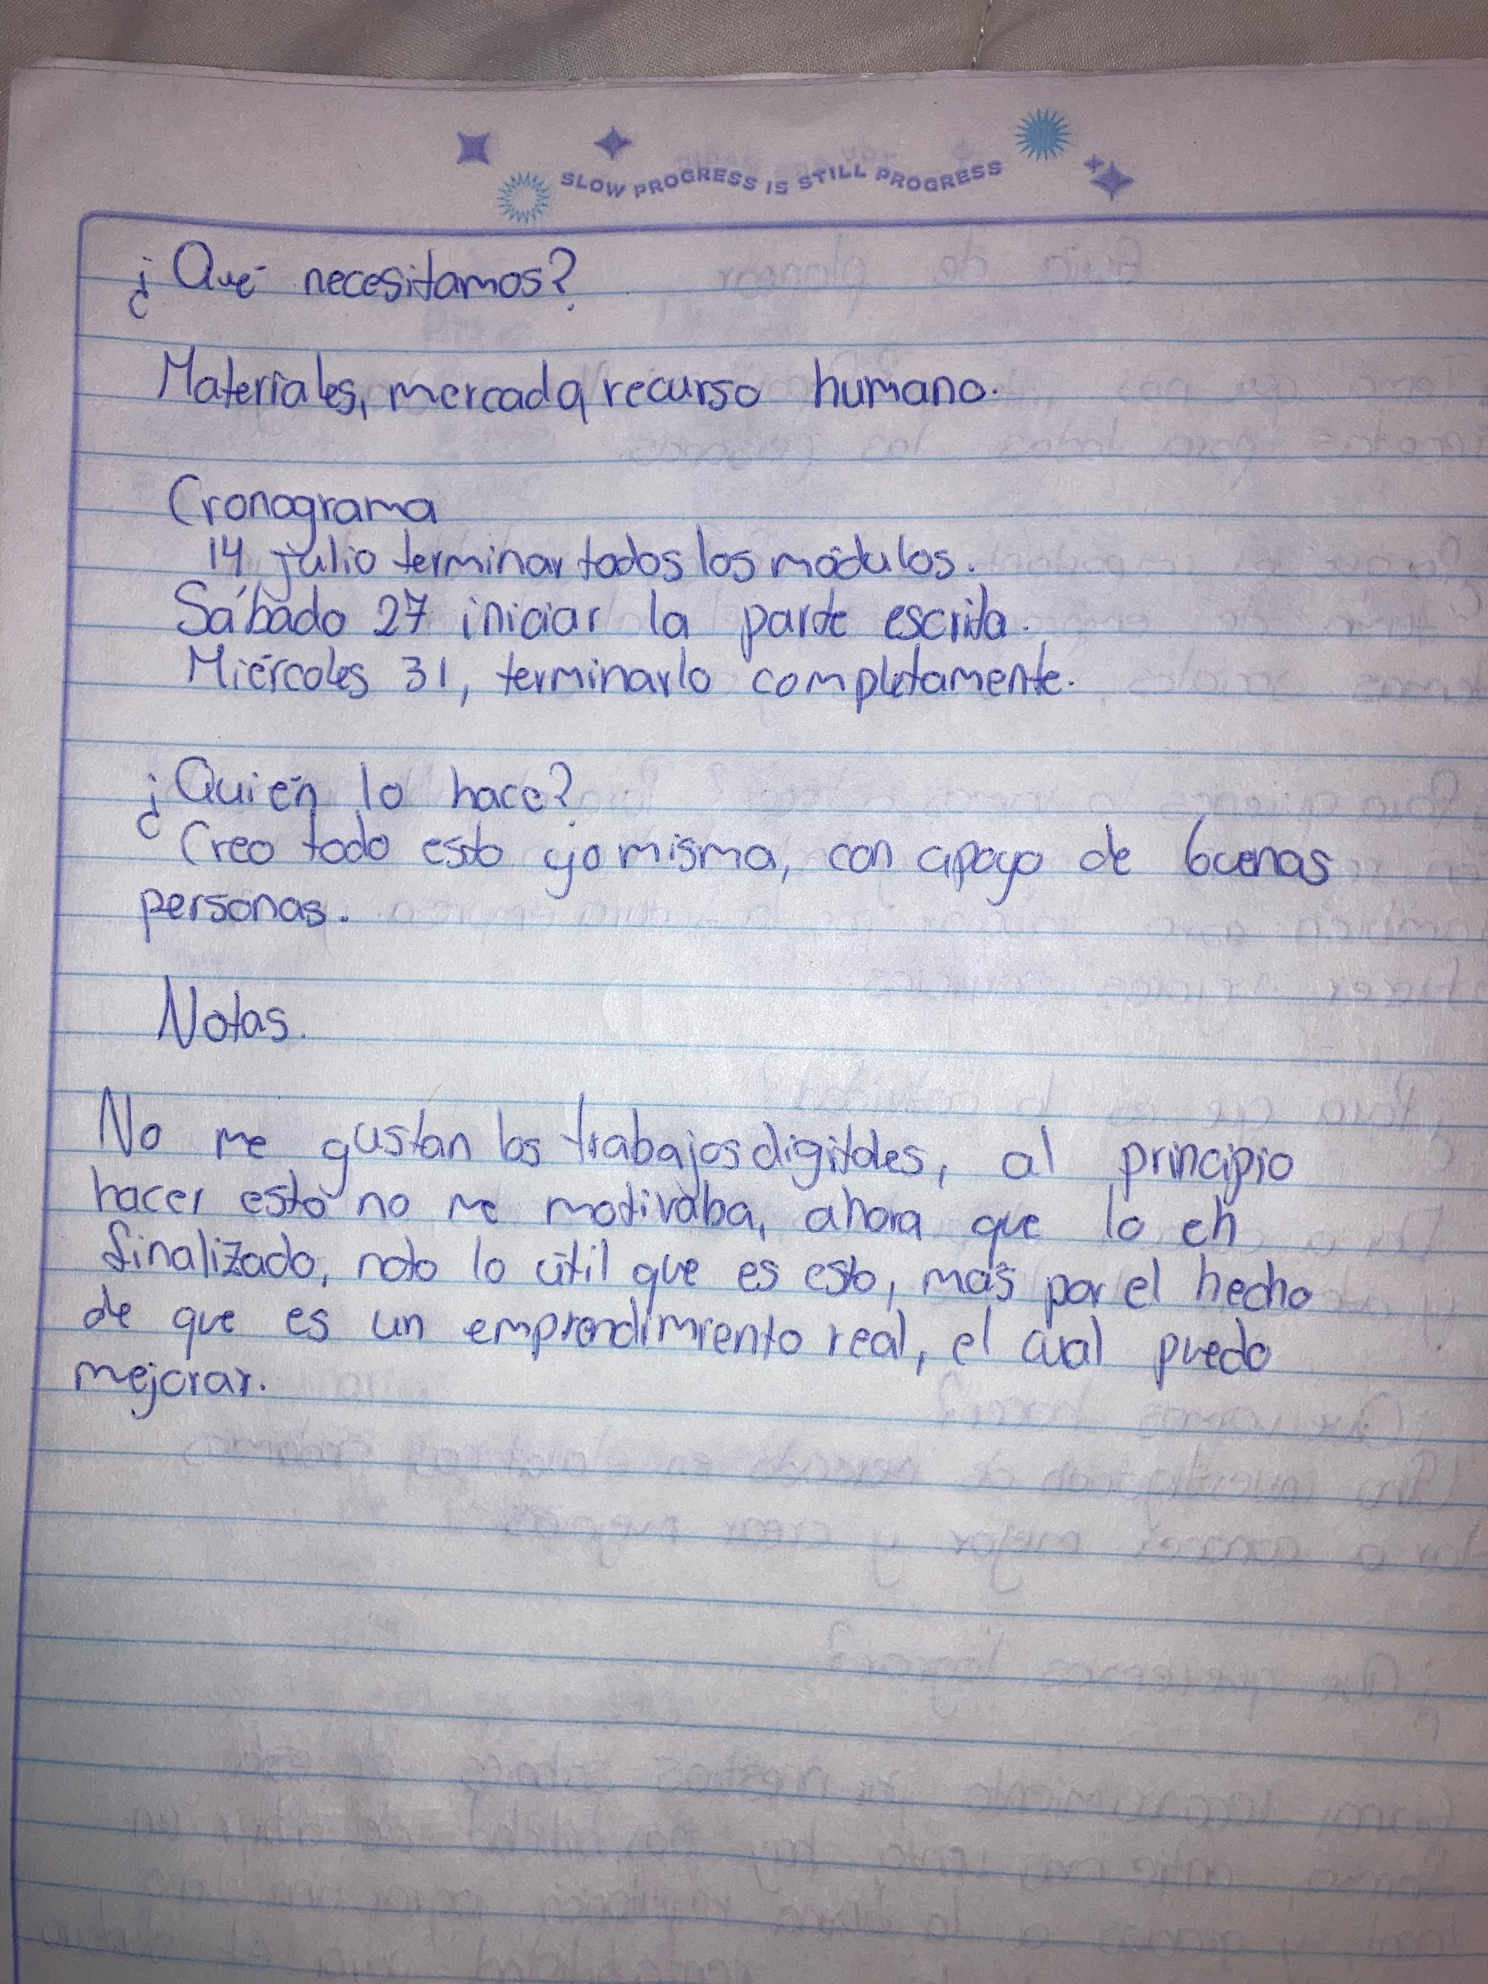 SLOW PROGRESS IS STILL PROGRESS
¿Qué necesitamos?
Materiales, mercado, recurso humano.
Cronograma
14 julio terminar todos los módulos.
Sábado 27 iniciar la parte escrita.
Miércoles 31, terminarlo completamente.
¿Quién lo hace?
Creo todo esto yo misma, con apoyo de buenas
personas.
Notas.
No me gustan los trabajos digitales, al principio
hacer esto no me motivaba, ahora que lo eh
finalizado, noto lo útil que es esto, más por el hecho
de que es un emprendimiento real, el cual puedo
mejorar.